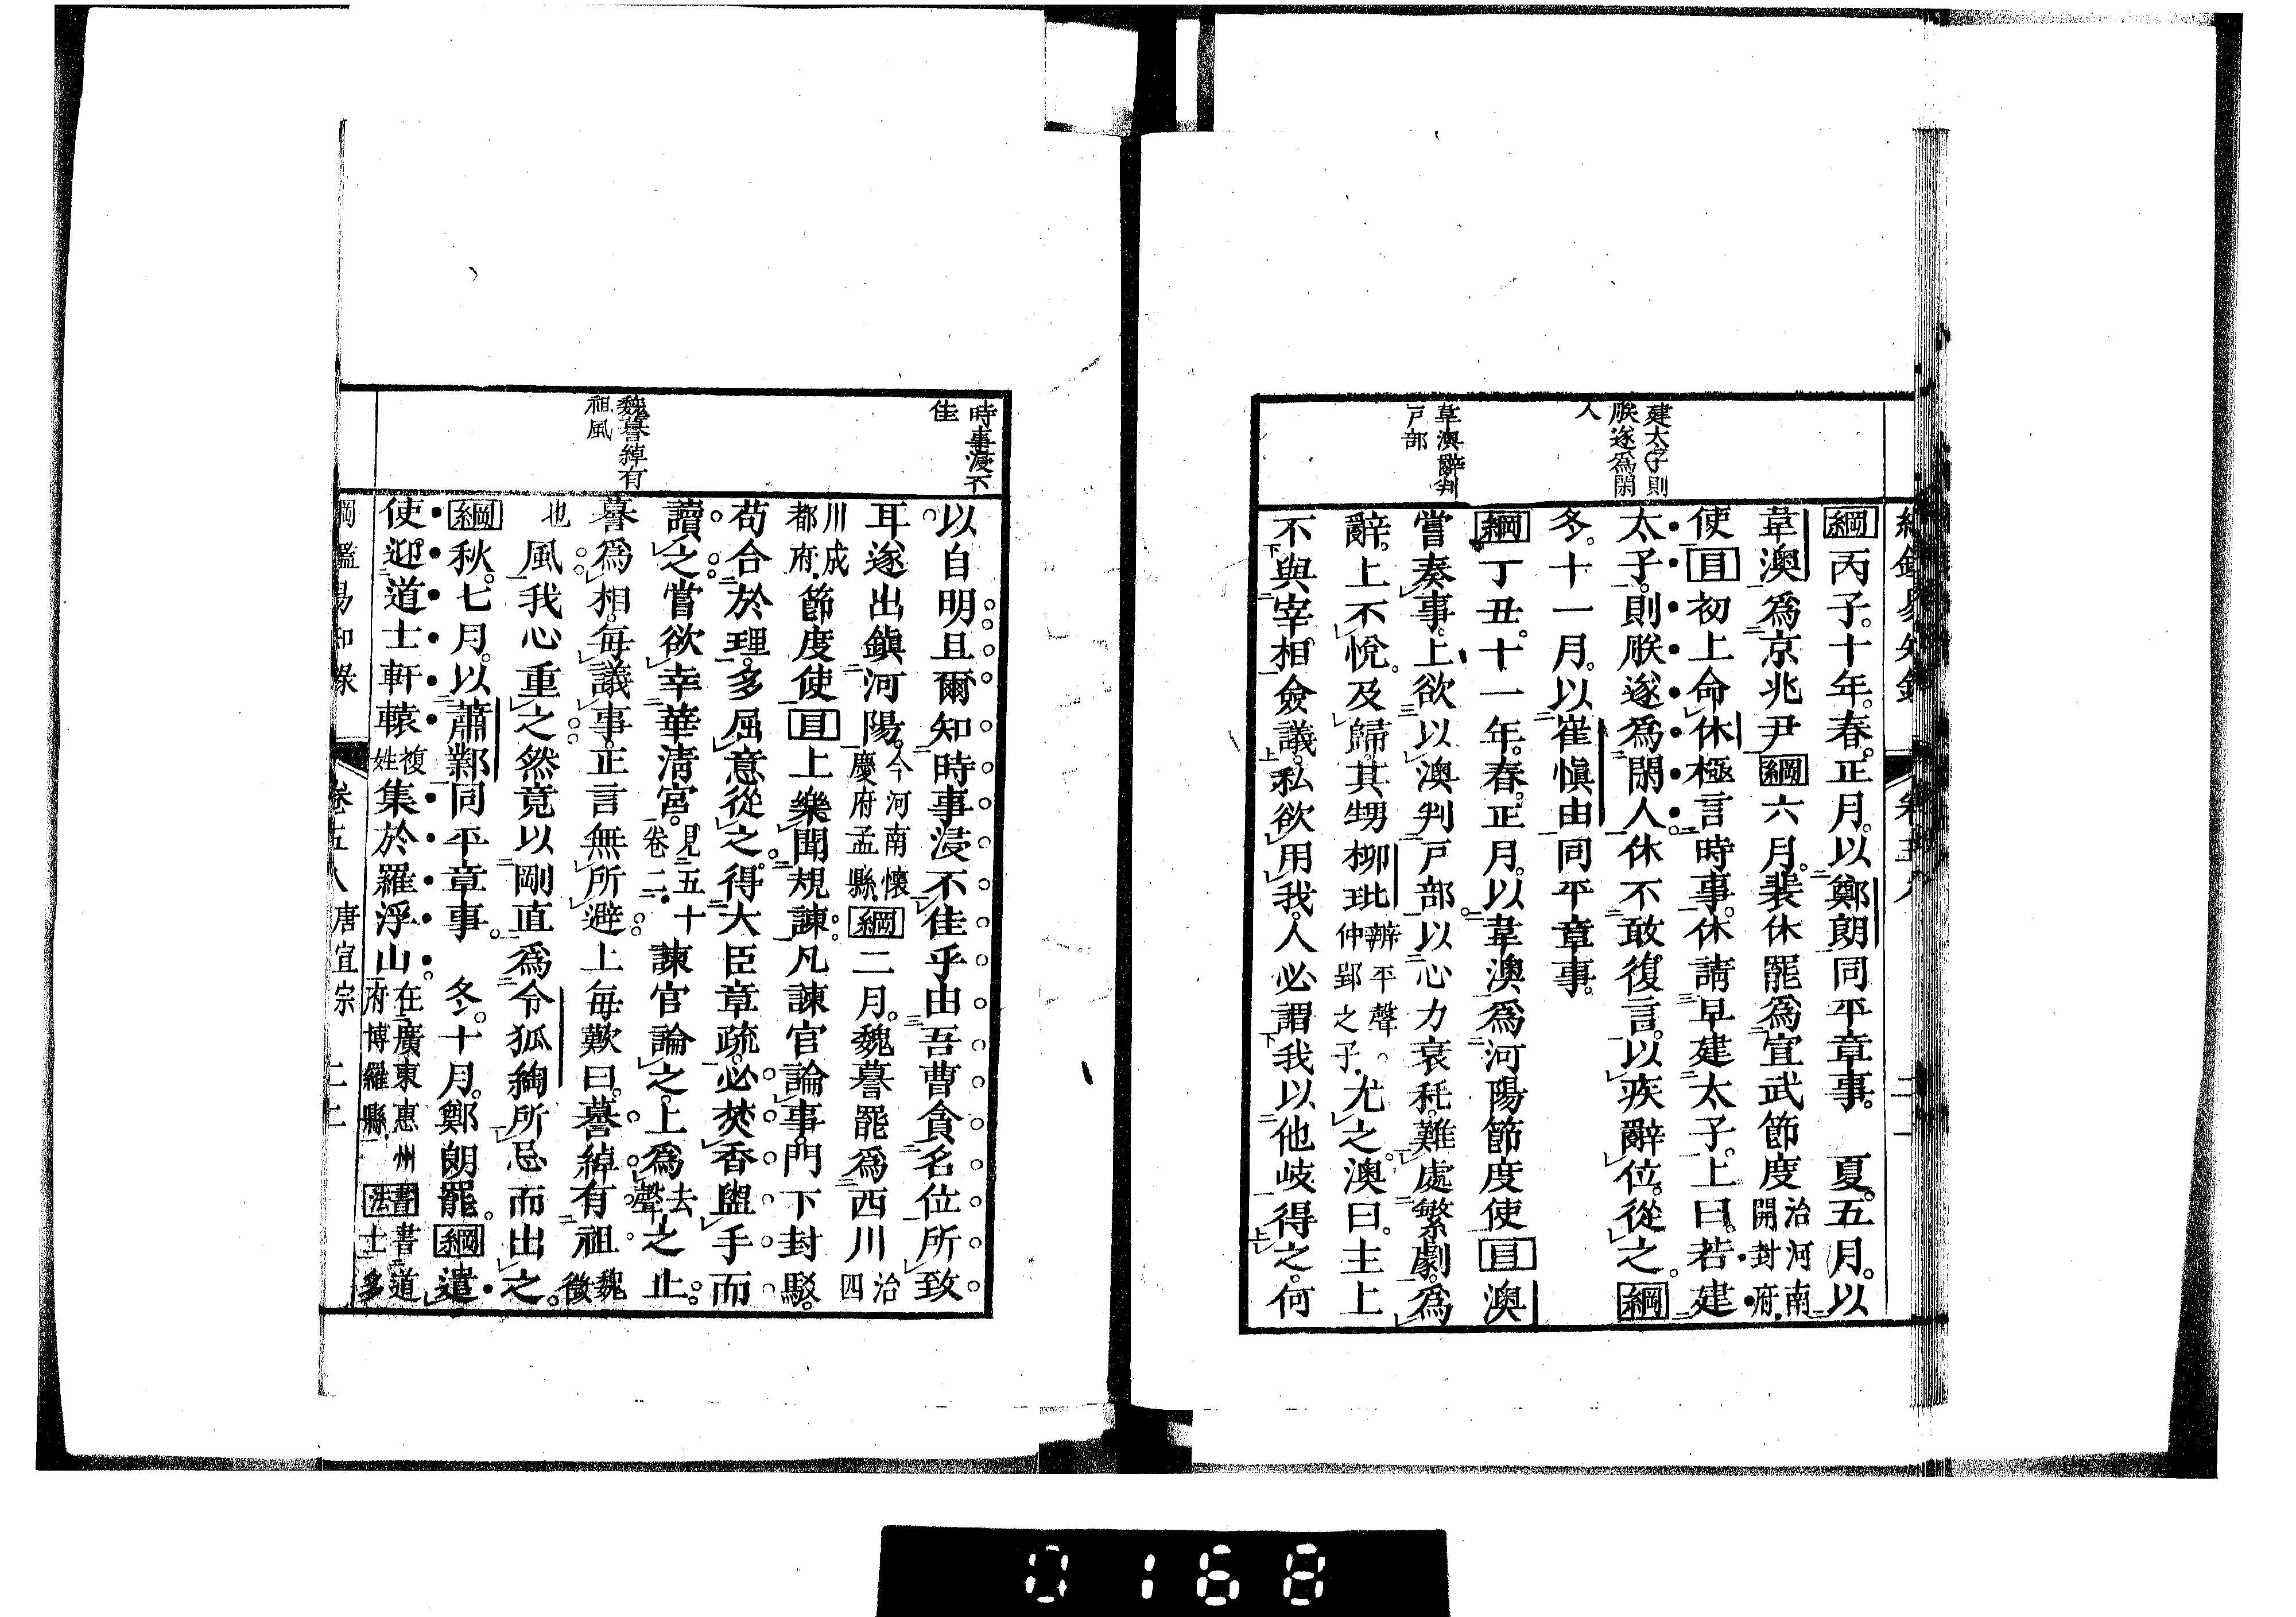 建太子則
朕遂為閑
人
韋澳辭判
戸部
綱丙子。十年。春。正月。以鄭朗同平章事。　夏。五月。以
韋澳爲京兆尹綱六月。裴休罷爲宣武節度治河南開封府．
使目初上命休極言時事。休請早建太子。上曰。若建
太子。則朕遂爲閑人。休不敢復言。以疾辭位。從之。綱
冬。十一月。以崔愼由同平章事。
綱丁丑。十一年。春。正月。以韋澳爲河陽節度使目澳
嘗奏事。上欲以澳判戸部。以心力衰秏。難處繁劇。爲
辭。上不悅。及歸。其甥柳玭辨平聲。仲郢之子．尤之。澳曰。主上
不與宰相僉議。私欲用我。人必謂我以他歧得之。何
時事浸不
佳
魏謩綽有
祖風
以自明。且爾知時事浸不佳乎。由吾曹貪名位所致
耳。遂出鎭河陽。今河南懷慶府孟縣．綱二月。魏謩罷爲西川治四
川成都府．節度使目上樂聞規諫。凡諫官論事。門下封駁。
苟合於理。多屈意從之。得大臣章疏。必焚香盥手而
讀之。嘗欲幸華淸宮。見五十卷二．諫官論之。上爲去聲之止。
謩爲相。每議事。正言無所避。上每歎曰。謩綽有祖魏徵
也風。我心重之。然竟以剛直爲令狐綯所忌而出之。
綱秋。七月。以蕭鄴同平章事。　冬。十月。鄭朗罷。綱遣
使迎道士軒轅複姓集於羅浮山。在廣東惠州府博羅縣．書法書道士多
綱鑑易知錄　卷五八　唐宣宗
0168